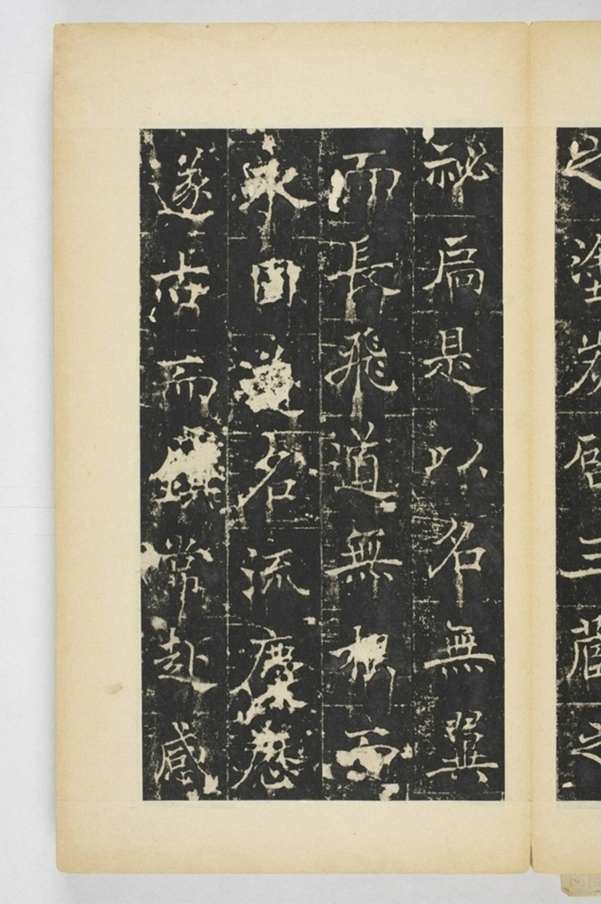 之塗炭啓三藏之
祕扃是以名無翼
而長飛道無根而
永固道名流慶歷
遂古而鎮常赴感